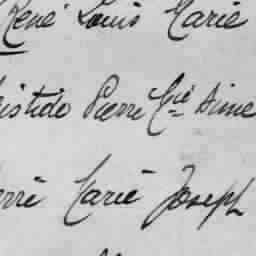 René Louis Marie
istide Pierre Cné Aime
erré Marie Joseph